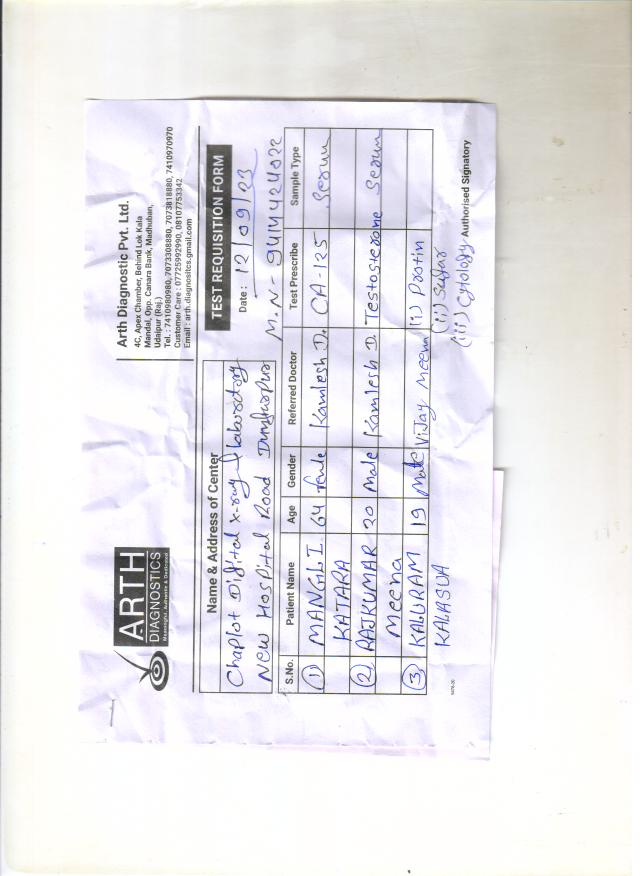 ARTH
DIAGNOSTICS
Meaningful, Authentic & Dedicated
Arth Diagnostic Pvt. Ltd.
4C, Apex Chamber, Behind Lok Kala
Mandal, Opp. Canara Bank, Madhuban,
Udaipur (Raj.)
Tel. : 7410980980, 7073308880, 7073818880, 7410970970
Customer Care : 07725992990, 08107753342
Email : arth.diagnositcs.gmail.com
Name & Address of Center
Chaplot Digital X-ray & laboratory
New Hospital Road Dungarpur
TEST REQUISITION FORM
Date : 12/09/23
M.N- 9414424022
S.No. Patient Name Age Gender Referred Doctor Test Prescribe Sample Type
(1) MANGLI 64 Female Kamlesh D. CA-125 Serum
KATARA
(2) RAJKUMAR 20 Male Kamlesh D. Testosterone Serum
Meena
(3) KALURAM 19 Male Vijay Meena (i) Protin
KALASUA (ii) Sugar
(iii) Cytology
Authorised Signatory